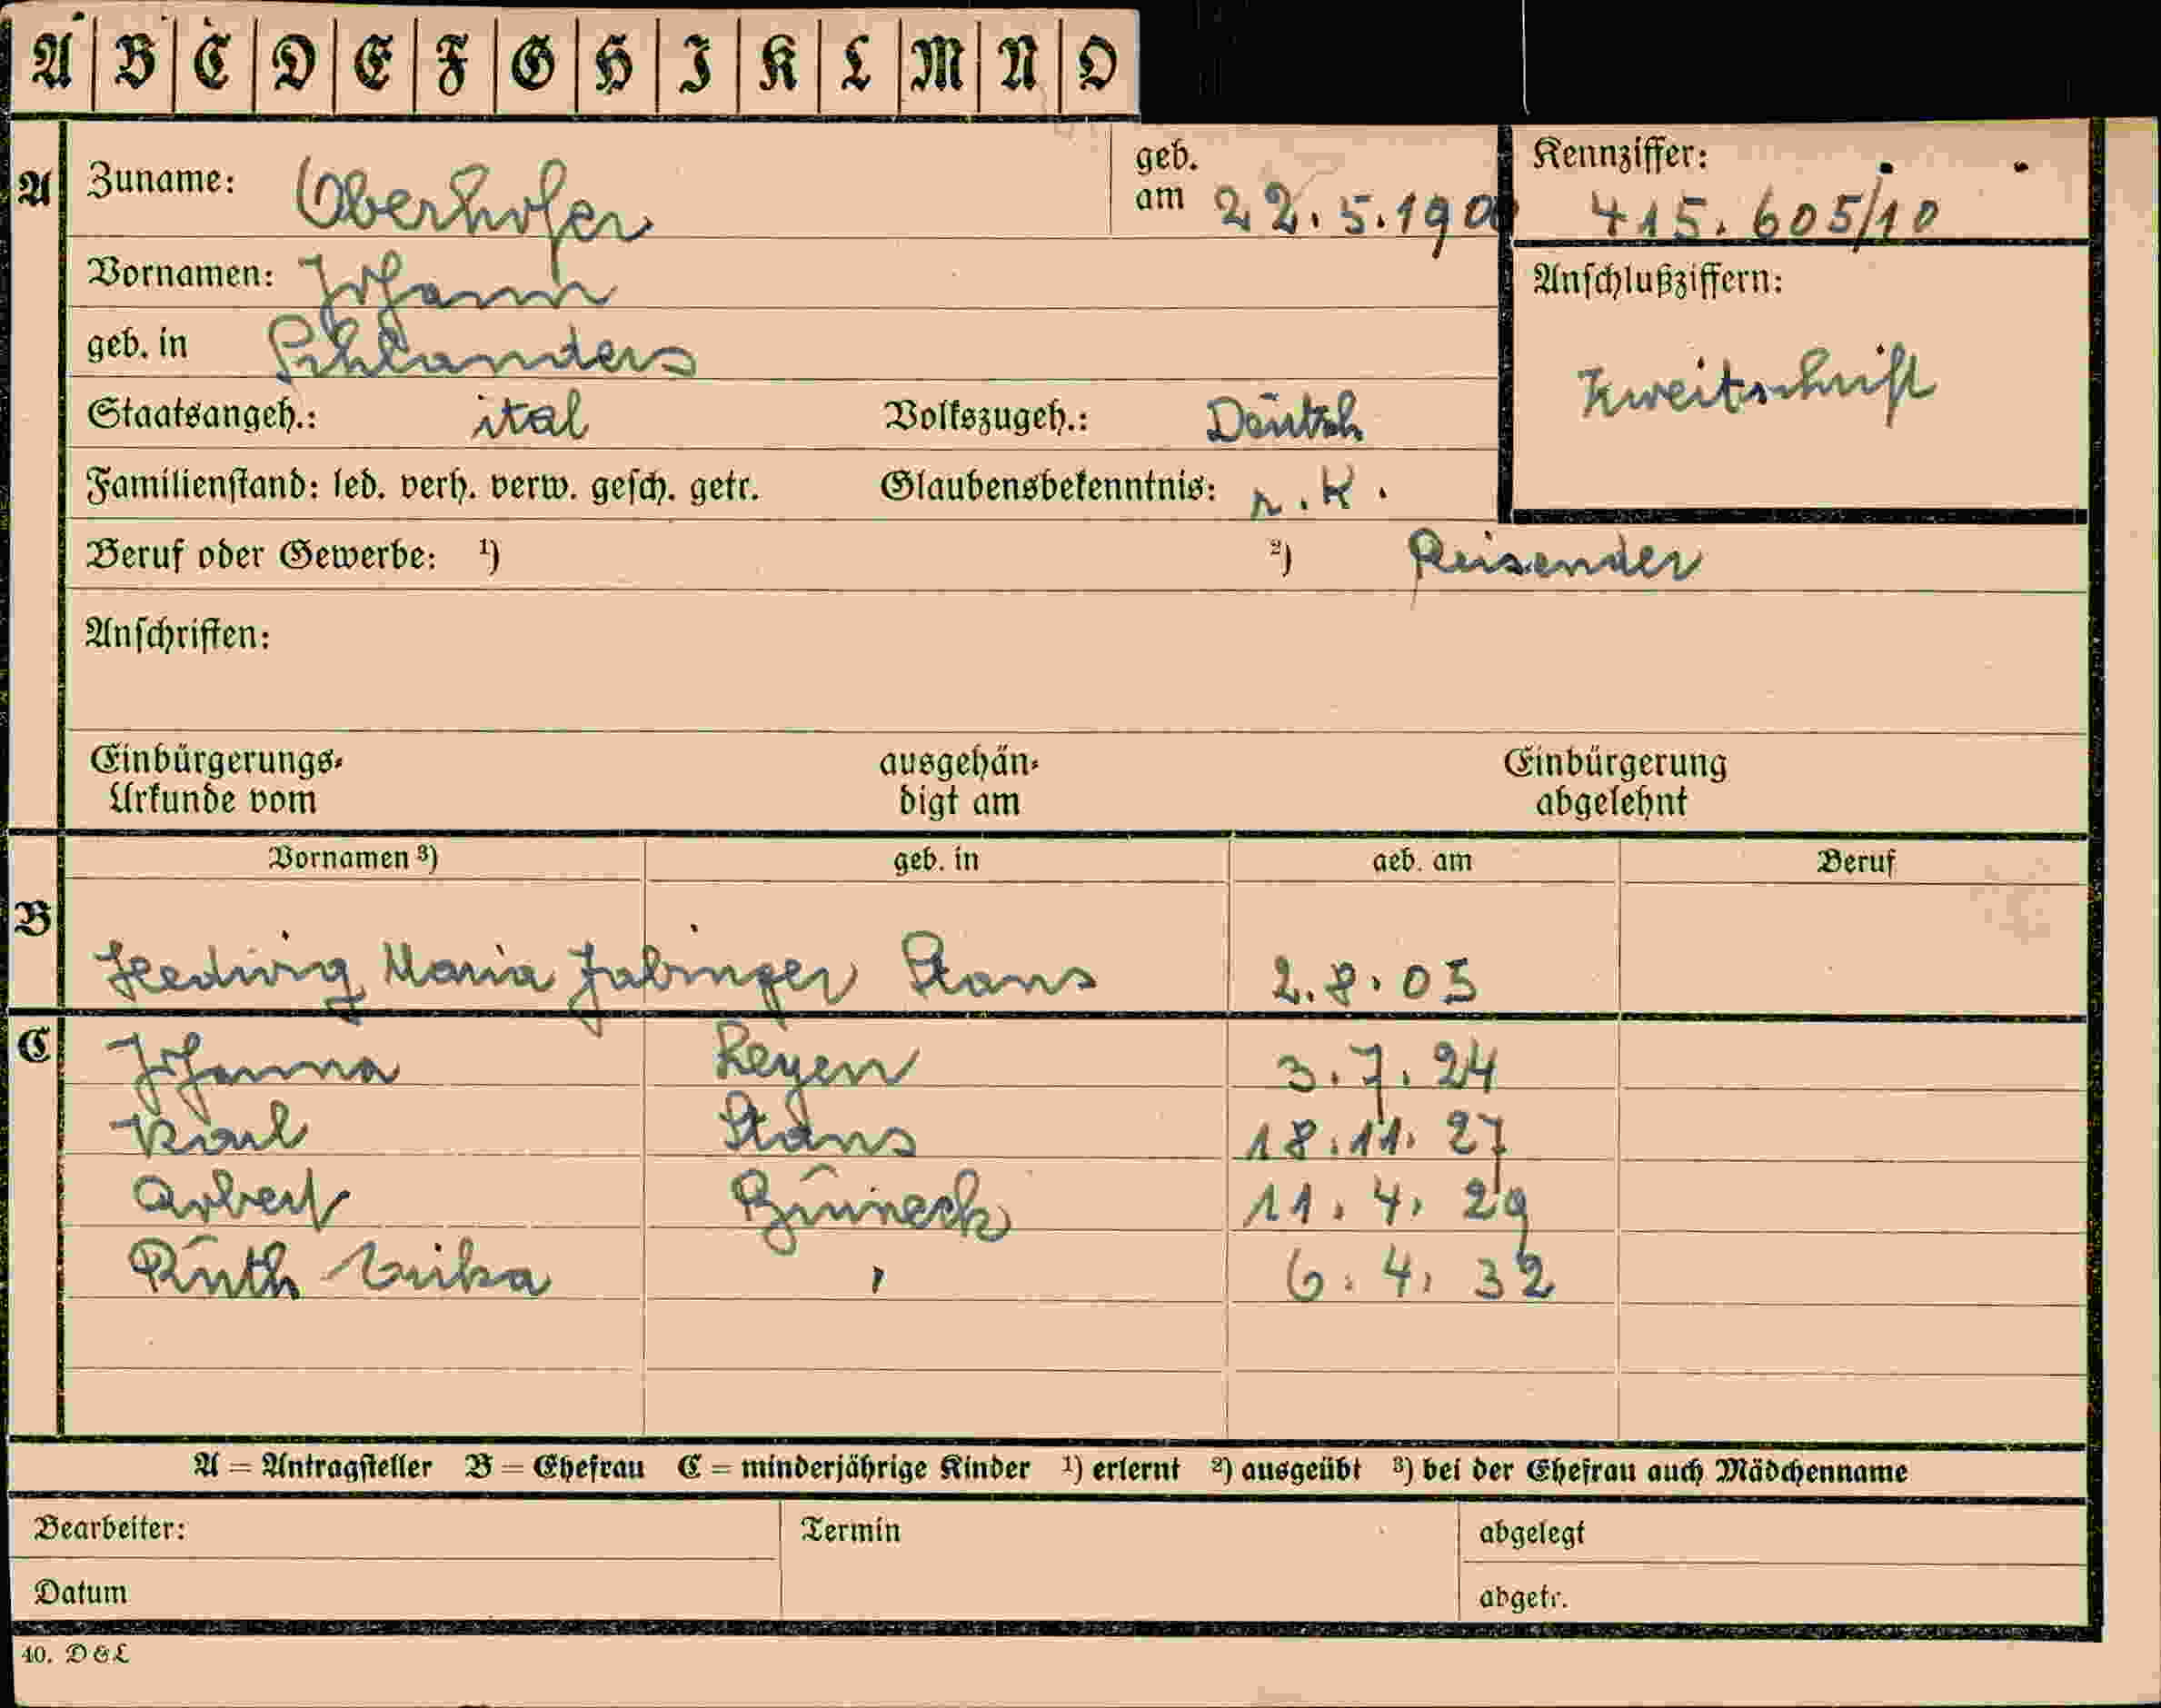 A B C D E F G H I K L M N O
A Zuname: Oberhofer geb. am 22.5.190 Kennziffer: 415.605/10
Vornamen: Johann Anschlußziffern:
geb. in Schlanders Zweitschrift
Staatsangeh.: ital Volkszugeh.: Deutsch
Familienstand: led. verh. verw. gesch. getr. Glaubensbekenntnis: r.K.
Beruf oder Gewerbe: ¹) ²) Reisender
Anschriften:
Einbürgerungs- ausgehän- Einbürgerung
Urkunde vom digt am abgelehnt
Vornamen ³) geb. in geb. am Beruf
B Hedwig Maria Jabinger Stans 2.8.05
C Johanna Leyen 3.7.24
Karl Stans 18.11.27
Bruneck 11.4.29
Ruth Erika " 6.4.32
A = Antragsteller B = Ehefrau C = minderjährige Kinder ¹) erlernt ²) ausgeübt ³) bei der Ehefrau auch Mädchenname
Bearbeiter: Termin abgelegt
Datum abgetr.
40. D & L